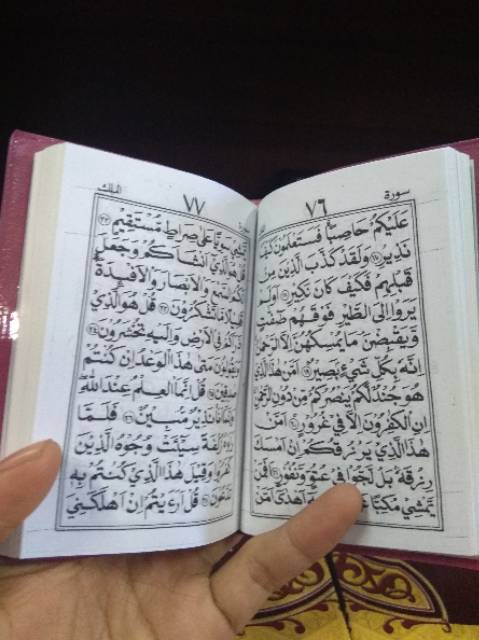 سورة
٧٦
عَلَيْكُمْ حَاصِبًا فَسَتَعْلَمُونَ كَيْفَ
نَذِيرِ ١٧ وَلَقَدْ كَذَّبَ الَّذِينَ مِنْ
قَبْلِهِمْ فَكَيْفَ كَانَ نَكِيرِ ١٨ اَوَلَمْ
يَرَوْا اِلَى الطَّيْرِ فَوْقَهُمْ صٰٓفّٰتٍ
وَّيَقْبِضْنَ مَا يُمْسِكُهُنَّ اِلَّا الرَّحْمٰنُ
اِنَّهٗ بِكُلِّ شَيْءٍ بَصِيرٌ ١٩ اَمَّنْ هٰذَا الَّذِي
هُوَ جُنْدٌ لَّكُمْ يَنْصُرُكُمْ مِّنْ دُوْنِ الرَّحْمٰنِ
اِنِ الْكٰفِرُوْنَ اِلَّا فِي غُرُوْرٍ ٢٠ اَمَّنْ
هٰذَا الَّذِي يَرْزُقُكُمْ اِنْ اَمْسَكَ
رِزْقَهٗ بَلْ لَّجُّوْا فِي عُتُوٍّ وَّنُفُوْرٍ ٢١ اَفَمَنْ
يَّمْشِي مُكِبًّا اَهْدٰى اَمَّنْ
٧٧
الملك
سَوِيًّا عَلٰى صِرَاطٍ مُّسْتَقِيْمٍ ٢٢
قُلْ هُوَ الَّذِي اَنْشَاَكُمْ وَجَعَلَ
لَكُمُ السَّمْعَ وَالْاَبْصَارَ وَالْاَفْـِٕدَةَ
قَلِيْلًا مَّا تَشْكُرُوْنَ ٢٣ قُلْ هُوَ الَّذِي
ذَرَاَكُمْ فِي الْاَرْضِ وَاِلَيْهِ تُحْشَرُوْنَ ٢٤
وَيَقُوْلُوْنَ مَتٰى هٰذَا الْوَعْدُ اِنْ كُنْتُمْ
صٰدِقِيْنَ ٢٥ قُلْ اِنَّمَا الْعِلْمُ عِنْدَ اللّٰهِ
وَاِنَّمَا اَنَا نَذِيْرٌ مُّبِيْنٌ ٢٦ فَلَمَّا
رَاَوْهُ زُلْفَةً سِيْٓـَٔتْ وُجُوْهُ الَّذِيْنَ
كَفَرُوْا وَقِيْلَ هٰذَا الَّذِي كُنْتُمْ بِهٖ
تَدَّعُوْنَ ٢٧ قُلْ اَرَءَيْتُمْ اِنْ اَهْلَكَنِيَ